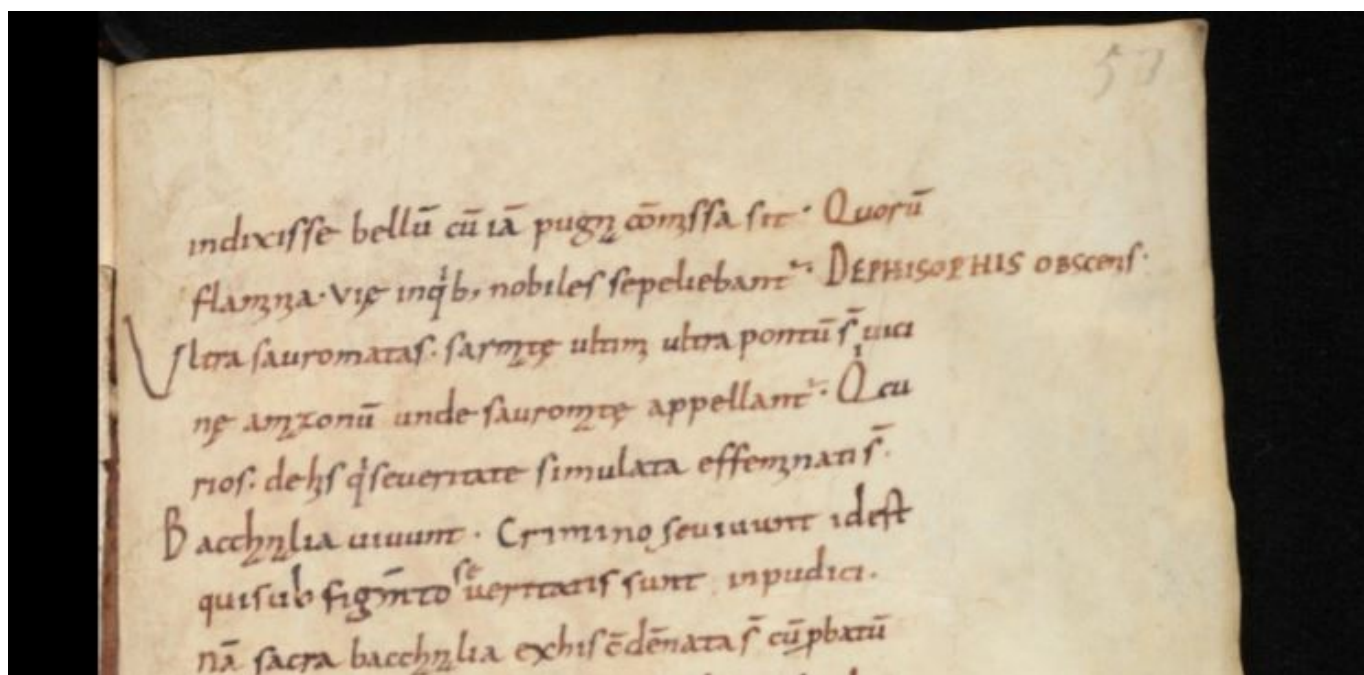 57
indixisse bellū cū iā pugna cōmissa sit · Quorū
flamina · vię inqͥb; nobiles sepeliebant᷑ · DEPHISOPHIS OBSCENIS ·
Vltra sauromatas · sarmatę ultimi ultra pontū s̄ uici
nę amazonū unde sauromatę appellant᷑ · Qͥ cu
rios : dehis qͥ seueritate simulata effeminati s̄ ·
Bacchanalia uiuunt · Criminose uiuunt id est
qui sub figmēto seueritatis sunt inpudici ·
nā sacra bacchanalia ex his cōdēnata s̄ cū pbatū